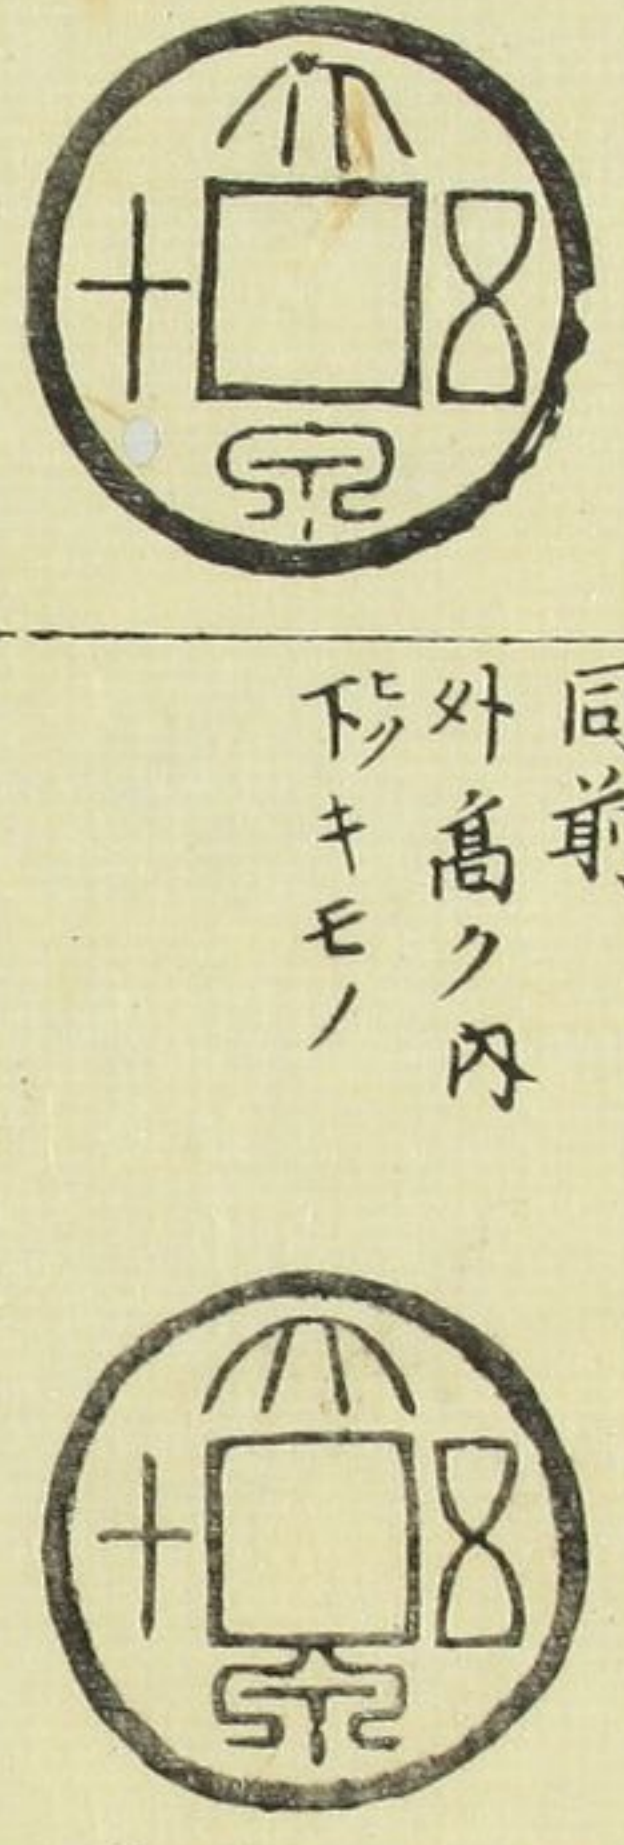 大泉五十
同前
外髙ク内
下ヒクキモノ
大泉五十